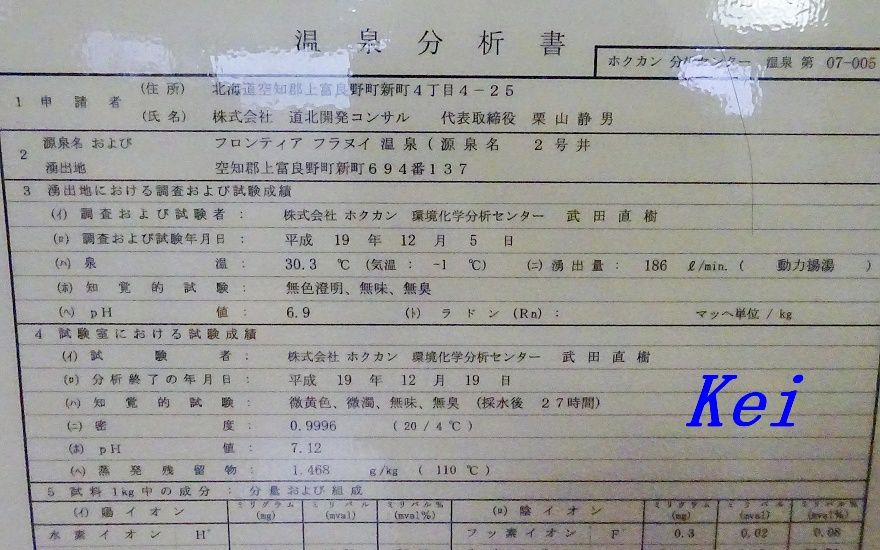 温泉分析書
ホクカン 分析センター 温泉 第 07-005
1 申請者 (住所) 北海道空知郡上富良野町新町4丁目4-25
(氏名) 株式会社 道北開発コンサル 代表取締役 栗山静男
2 源泉名 および 湧出地 フロンティア フラヌイ 温泉 (源泉名 2号井
空知郡上富良野町新町694番137
3 湧出地における調査および試験成績
(ｲ) 調査および試験者 : 株式会社 ホクカン 環境化学分析センター 武田直樹
(ﾛ) 調査および試験年月日 : 平成 19 年 12 月 5 日
(ﾊ) 泉温 : 30.3 ℃ (気温 : -1 ℃) (ﾆ) 湧出量 : 186 ℓ/min. ( 動力揚湯 )
(ﾎ) 知覚的試験 : 無色澄明、無味、無臭
(ﾍ) pH値 : 6.9 (ﾄ) ラドン (Rn) : マッヘ単位 / kg
4 試験室における試験成績
(ｲ) 試験者 : 株式会社 ホクカン 環境化学分析センター 武田直樹
(ﾛ) 分析終了の年月日 : 平成 19 年 12 月 19 日
(ﾊ) 知覚的試験 : 微黄色、微濁、無味、無臭 (採水後 27時間)
(ﾆ) 密度 : 0.9996 ( 20 / 4 ℃ )
(ﾎ) pH値 : 7.12
(ﾍ) 蒸発残留物 : 1.468 g/kg ( 110 ℃ )
5 試料1kg中の成分 : 分量および組成
(ｲ) 陽イオン ミリグラム (mg) ミリバル (mval) ミリバル% (mval%) (ﾛ) 陰イオン ミリグラム (mg) ミリバル (mval) ミリバル% (mval%)
水素イオン H⁺ フッ素イオン F 0.3 0.02 0.08
Kei